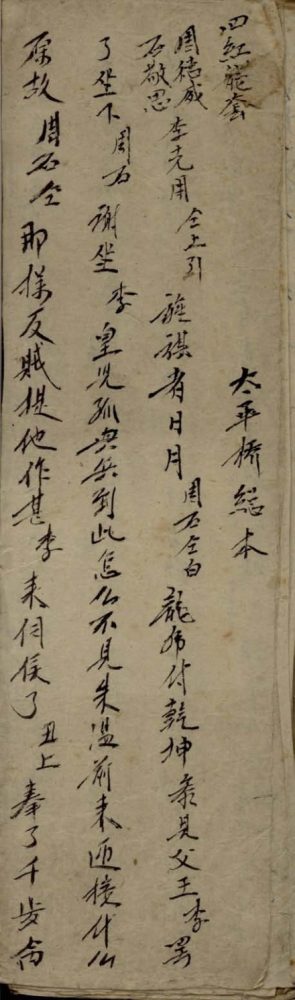 四紅龍套
太平橋総本
周德威 李克用 仝上引 旌旗者日月 周石仝白 龍虎付乾坤 叅見父王 李 罢
石敬思
了坐下 周石 謝坐 李 皇児孤與兵到此怎仏不見朱温前来迎接什仏
原故 周石仝 那様反賊提他作甚 李 来伺候了 丑上 奉了千岁命